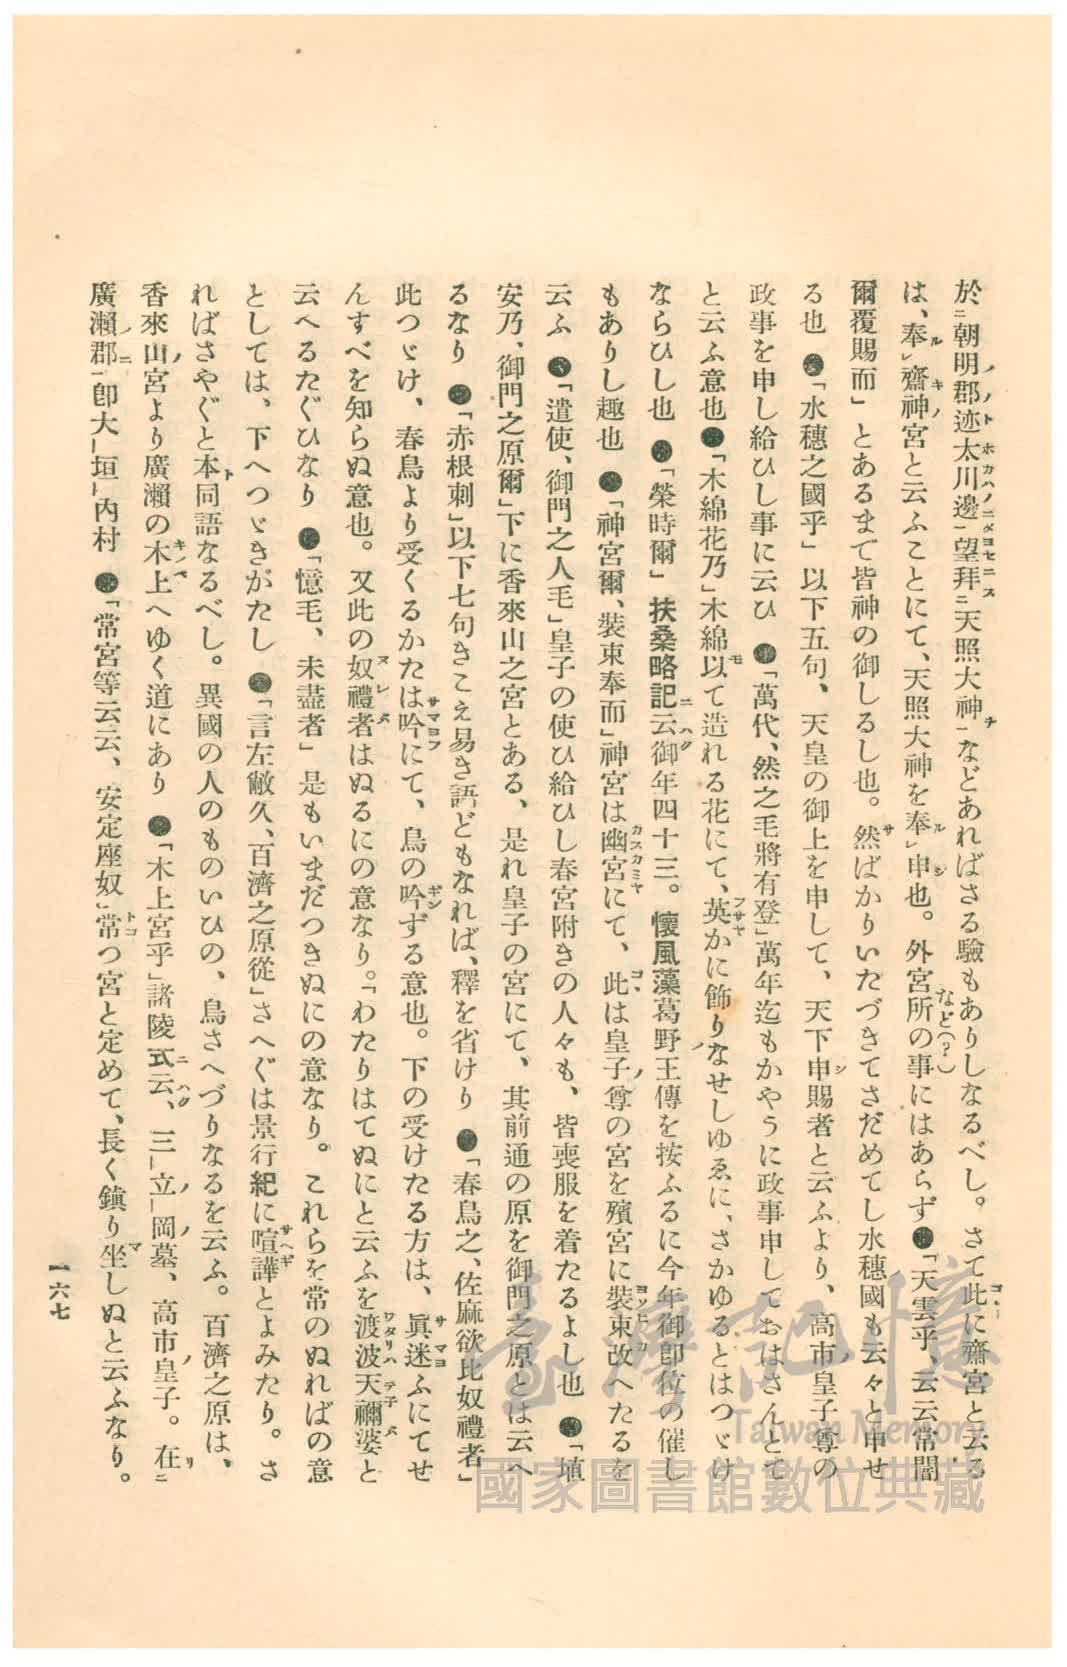 於朝明郡迹太川邊望拜天照大神などあればさる驗もありしなるべし。さて此に齋宮と云る
は、奉齋神宮と云ふことにて、天照大神を奉申也。外宮所の事にはあらず●「天雲乎、云云常闇
など(?)
爾覆賜而」とあるまで皆神の御しるし也。然ばかりいたづきてさだめてし水穗國も云々と申せ
る也●「水穗之國乎」以下五句、天皇の御上を申して、天下申賜者と云ふより、高市皇子尊の
政事を申し給ひし事に云ひ●「萬代、然之毛將有登」萬年迄もかやうに政事申しておはさんとて
と云ふ意也●「木綿花乃」木綿以て造れる花にて、英かに飾りなせしゆゑに、さかゆるとはつゞけ
ならひし也●「榮時爾」扶桑略記云御年四十三。懷風藻葛野王傳を按ふるに今年御卽位の催し
もありし趣也●「神宮爾、裝束奉而」神宮は幽宮にて、此は皇子尊の宮を殯宮に裝束改へたるを
云ふ●「遣使、御門之人毛」皇子の使ひ給ひし春宮附きの人々も、皆喪服を着たるよし也●「埴
安乃、御門之原爾」下に香來山之宮とある、是れ皇子の宮にて、其前通の原を御門之原とは云へ
るなり●「赤根刺」以下七句きこえ易き語どもなれば、釋を省けり●「春鳥之、佐麻欲比奴禮者」
此つゞけ、春鳥より受くるかたは吟にて、鳥の吟ずる意也。下の受けたる方は、眞迷ふにてせ
んすべを知らぬ意也。又此の奴禮者はぬるにの意なり。「わたりはてぬにと云ふを渡波天禰婆と
云へるたぐひなり●「憶毛、未盡者」是もいまだつきぬにの意なり。これらを常のぬればの意
としては、下へつゞきがたし●「言左敝久、百濟之原從」さへぐは景行紀に喧譁とよみたり。さ
ればさやぐと本同語なるべし。異國の人のものいひの、鳥さへづりなるを云ふ。百濟之原は、
香來山宮より廣瀨の木上へゆく道にあり●「木上宮乎」諸陵式云、三立岡墓、高市皇子。在
廣瀨郡卽大垣內村●「常宮等云云、安定座奴」常つ宮と定めて、長く鎭り坐しぬと云ふなり。
一六七
臺灣記憶
Taiwan Memory
國家圖書館數位典藏